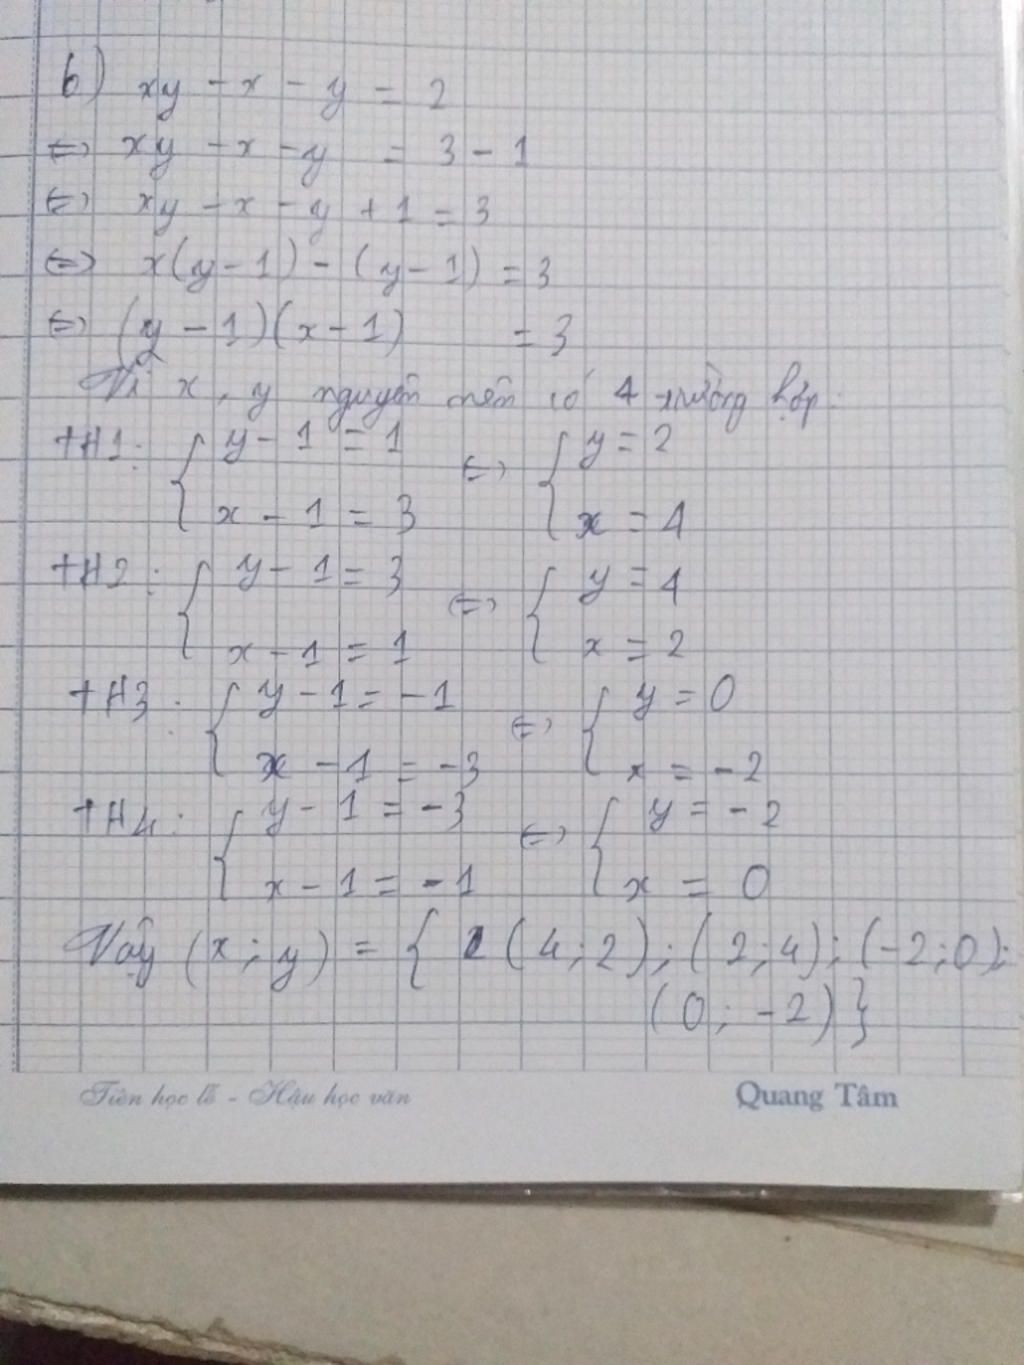 6) xy - x - y = 2
⇔ xy - x - y = 3 - 1
⇔ xy - x - y + 1 = 3
⇔ x(y - 1) - (y - 1) = 3
⇔ (y - 1)(x - 1) = 3
Vì x, y nguyên nên có 4 trường hợp:
TH1: { y - 1 = 1 ⇔ { y = 2
x - 1 = 3 x = 4
TH2: { y - 1 = 3 ⇔ { y = 4
x - 1 = 1 x = 2
TH3: { y - 1 = -1 ⇔ { y = 0
x - 1 = -3 x = -2
TH4: { y - 1 = -3 ⇔ { y = -2
x - 1 = -1 x = 0
Vậy (x; y) = { (4; 2); (2; 4); (-2; 0);
(0; -2) }
Tiên học lễ - Hậu học văn Quang Tâm